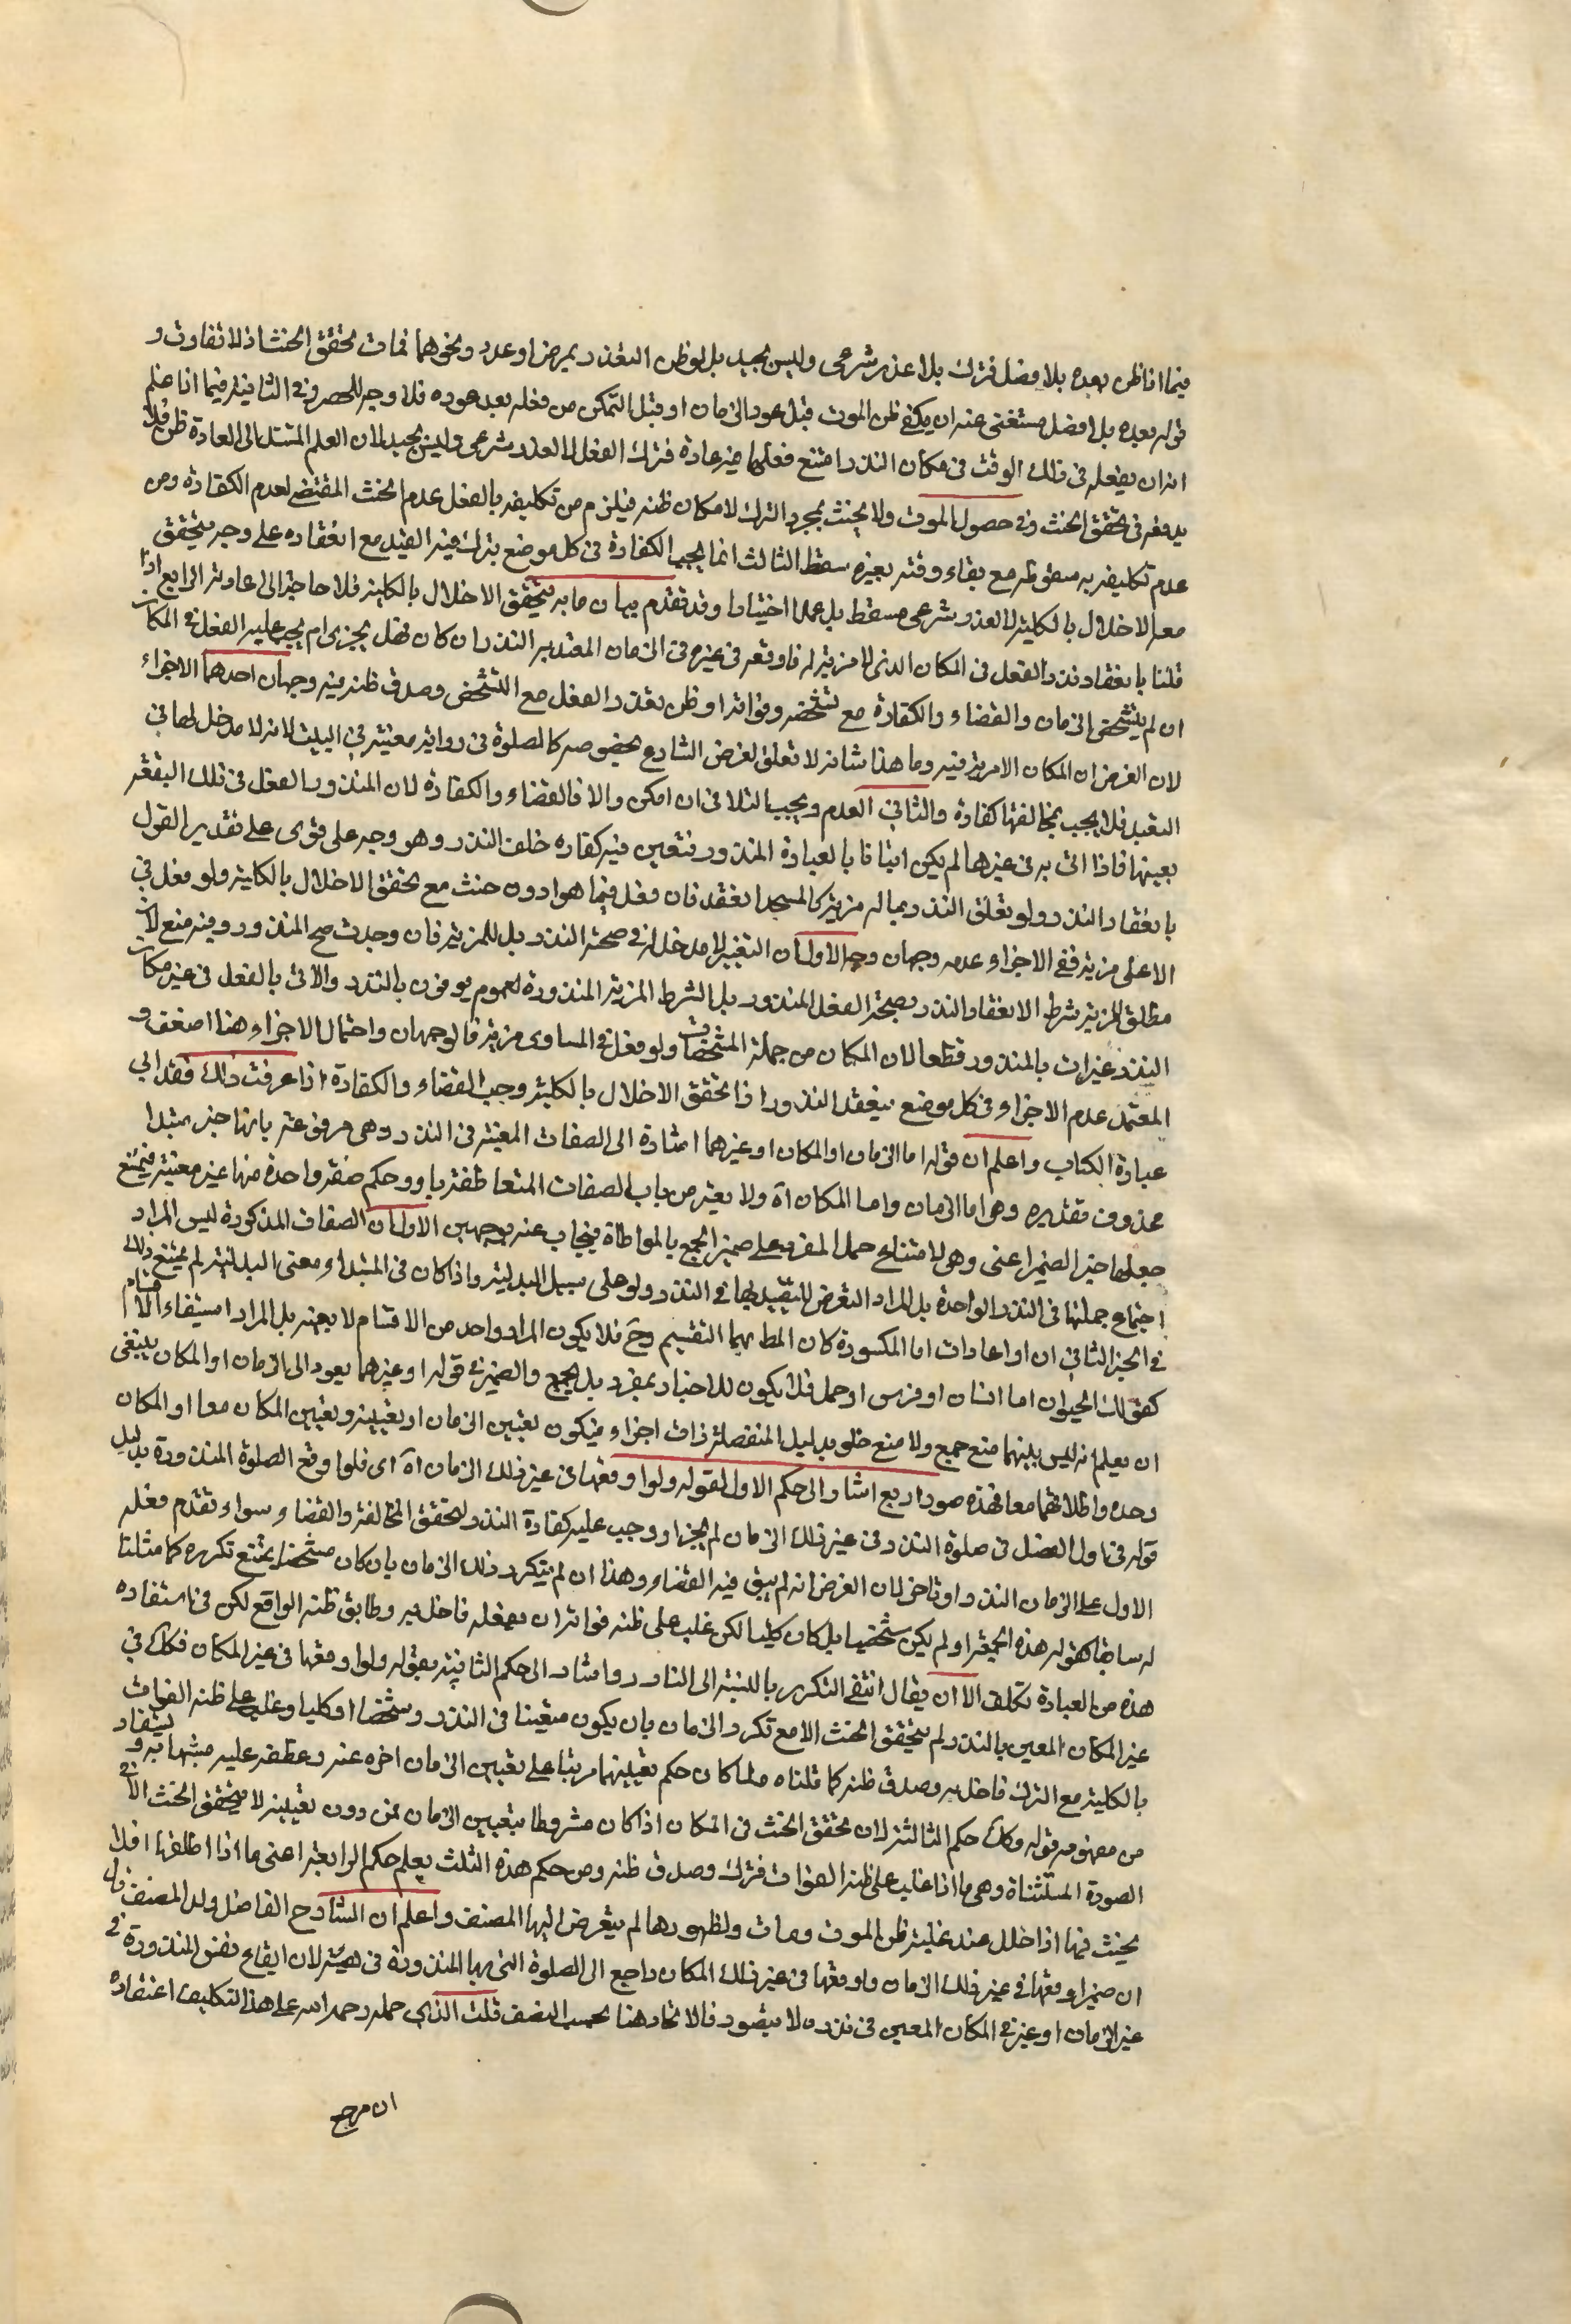 فيما اذا ظن بعده بلا فصل فترك بلا عذر شرعى وليس بجيد بل لو ظن التعذر بمرض او عدد ونحوهما فمات تحقق الحنث اذ لا تفاوت و
قوله بعده بلا فصل مستغنى عنه ان يكفى ظن الموت قبل عود الزمان او قبل التمكن من فعله بعد عوده فلا وجه للحصر فى الثانية فيما اذا علم
انه ان يفعله فى ذلك الوقت فى مكان النذر امتنع فعلها فيه عادة فترك الفعل لا لعذر شرعى وليس بجيد لان العلم المستند الى العادة ظن فلا
يد وفه فى تحقق الحنث وفى حصول الموت ولا يحنث بمجرد الترك لامكان ظنه فيلزم من تكليفه بالفعل عدم الحنث المقتضى لعدم الكفارة ومن
عدم تكليفه به سقوطه مع بقاء وقته بغيره سقط الثالث انما يجب الكفارة فى كل موضع بترك فيه القيد مع انعقاده على وجه يتحقق
معه الاخلال بالكلية لا لعذر شرعى مسقط بل عمدا اختيارا وقد تقدم بيان ما به يتحقق الاخلال بالكلية فلا حاجة الى اعادته الرابع اذا
قلنا بانعقاد نذر الفعل فى المكان الذى لا مزية له فاوقعه فى غيره فى الزمان المعتد به النذر ان كان فهل يجزى ام يجب عليه الفعل فى المكان
ان لم يتشخص الزمان والقضاء والكفارة مع تشخصه وفواته او ظن تعذر الفعل مع التشخص وصدق ظنه فيه وجهان احدهما الاجزاء
لان الفرض ان المكان لا مزية فيه وما هذا شانه لا تعلق لغرض الشارع بخصوصه كالصلوة فى زواية معينة فى البيت لانه لا مدخل لها فى
التعبد فلا يجب بمخالفتها كفارة والثانى العدم ويجب التلافى ان امكن والا فالقضاء والكفارة لان المنذور الفعل فى تلك البقعة
بعينها فاذا اتى به فى غيرها لم يكن اتيانا بالعبادة المنذورة فتعين فيه كفارة خلف النذر وهو وجه على قوى على تقدير القول
بانعقاد النذر ولو تعلق النذر بما له مزية كالمسجد انعقد فان فعل فيما هو ادون حنث مع تحقق الاخلال بالكلية ولو فعل فى
الاعلى مزية ففى الاجزاء وعدمه وجهان وجه الاول ان التعيين لا مدخل له فى صحة النذر بل للمزية فان وجدت صح المنذور وفيه منع لان
مطلق المزية شرط لانعقاد النذر بصحة الفعل المنذور بل الشرط المزية المنذورة لعموم يوفون بالنذر والآتى بالفعل فى غير مكان
النذر غير آت بالمنذور قطعا لان المكان من جملة المشخصات ولو فعل فى المساوى مزية فالوجهان واحتمال الاجزاء هنا اضعف و
المعتمد عدم الاجزاء فى كل موضع ينعقد النذر واذا تحقق الاخلال بالكلية وجب القضاء والكفارة اذا عرفت ذلك فقد الى
عبارة الكتاب واعلم ان قوله اما الزمان او المكان او غيرهما اشارة الى الصفات المعينة فى النذر وهى مرفوعة بانها خبر مبتدا
محذوف تقديره وهى اما الزمان واما المكان آه ولا يعتبر من باب الصفات المتعاطفة باو وحكم صفة واحدة منها غير معينة فيمتنع
جعلها خبر الضمير اعنى وهى لامتناع حمل المفرد على ضمير الجمع بالمواطاة فيجاب عنه بوجهين الاول ان الصفات المذكورة ليس المراد
اجتماع جملتها فى النذر الواحدة بل المراد التعرض للتقييد بها فى النذر ولو على سبيل البدلية واذا كان فى المبتداء معنى البدلية لم يمتنع ذلك
فى الخبر الثانى ان او اعادات اما المكسورة كان المط بهما التقسيم وح فلا يكون المراد واحد من الاقسام لا بعينه بل المراد استيفاء الاقسام
كقولك الحيوان اما انسان او فرس او جمل فلا يكون للاخبار بمفرد بل بجمع والضمير فى قوله او غيرهما يعود الى الزمان او المكان ينبغى
ان يعلم انه ليس بينهما منع جمع ولا منع خلو بدليل المنفصلة ذات اجزاء فيكون تعيين الزمان او تعيينه وتعيين المكان معا او المكان
وحده واطلاقهما معا فهذه صور اربع اشار الى حكم الاول بقوله ولو اوقعها فى غير ذلك الزمان آه اى فلو اوقع الصلوة المنذورة بدليل
قوله فى اول الفصل فى صلوة النذر وفى غير ذلك الزمان لم يجز او وجب عليه كفارة النذر لتحقق المخالفة والقضاء سواء تقدم فعله
الاول على الزمان النذر او تاخر لان الفرض انه لم يبق فيه القضاء وهذا ان لم يتكرر ذلك الزمان بان كان مشخصا يمتنع تكرره كما مثلنا
له سابقا كقوله هذه الجمعة او لم يكن شخصيا بل كان كليا لكن غلب على ظنه فواته ان يفعله فاخل به وطابق ظنه الواقع لكن فى استفاده
هذه من العبارة تكلف الا ان يقال انتفى التكرر بالنسبة الى النادر واشار الى حكم الثانية بقوله ولو اوقعها فى غير المكان فكك فى
غير المكان المعين بالنذر ولم يتحقق الحنث الا مع تكرر الزمان بان يكون متعينا فى النذر وشخصا او كليا وغلب على ظنه الفوات
بالكلية مع الترك فاخل به وصدق ظنه كما قلناه ولما كان حكم تعيينهما مرتبا على تعيين الزمان اخره عنه وعطفه عليه مشبها به و يستفاد
من مفهومه قوله وكك حكم الثالثة لان تحقق الحنث فى المكان اذا كان مشروطا بتعيين الزمان فمن دون تعيينه لا يتحقق الحنث الا فى
الصورة المستثناة وهى ما اذا غلب على ظنه الفوات فترك وصدق ظنه ومن حكم هذه الثلث يعلم حكم الرابعة اعنى ما اذا اطلقها فلا
يحنث فيها اذا اخلل عند غلبة ظن الموت ومات ولظهورها لم يتعرض اليها المصنف واعلم ان الشارح الفاضل ولد المصنف قال
ان ضمير اوقعها فى غير ذلك الزمان واوقعها فى غير ذلك المكان راجع الى الصلوة التى بها المنذورة فى هيئته لان ايقاع نفس المنذورة فى
غير الزمان او غير فى المكان المعين فى نذره لا يتصور فالاتحاد هنا بحسب النصف قلت الذى حمله رحمه الله على هذا التكليف اعتقاده
ان مرجع